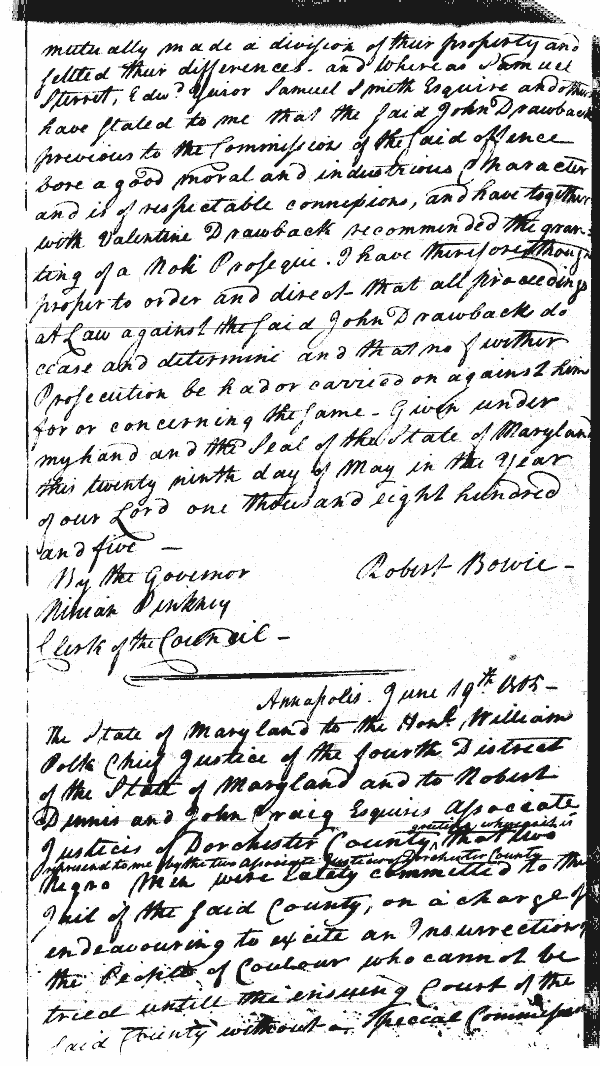 mutually made a division of their property and
settled their differences. and whereas Samuel
Sterret, Edwd Samuel Smith Esquire and others
have stated to me that the said John Drawback
previous to the Commission of the said offence
bore a good moral and industrious Character
and is of respectable connexions, and have together
with Valentine Drawback recommended the gran-
ting of a Noli Prosequi. I have therefore though
proper to order and direct - that all proceedings
at Law against the said John Drawback do
cease and determine and that no further
Prosecution be had or carried on against him
for or concerning the same - Given under
my hand and the Seal of the State of Maryland
this twenty ninth day of May in the Year
of our Lord one thousand eight hundred
and five —
By the Governor Robert Bowie -
Ninian Pinkney
Clerk of the Council -
Annapolis. June 19th 1805-
The State of Maryland to the Honl, William
Polk Chief Justice of the fourth District
of the State of Maryland and to Robert
Dennis and John Craig Esquires Associate
greeting whereas it is
Justices of Dorchester County, that two
represented to me by the two Associate Justices of Dorchester County
Negro Men were lately committed to the
Jail of the said County, on a charge of
endeavouring to excite an Insurrection
the People of Coulour who cannot be
tried untill the ensuing Court of the
said County without a Special Commission